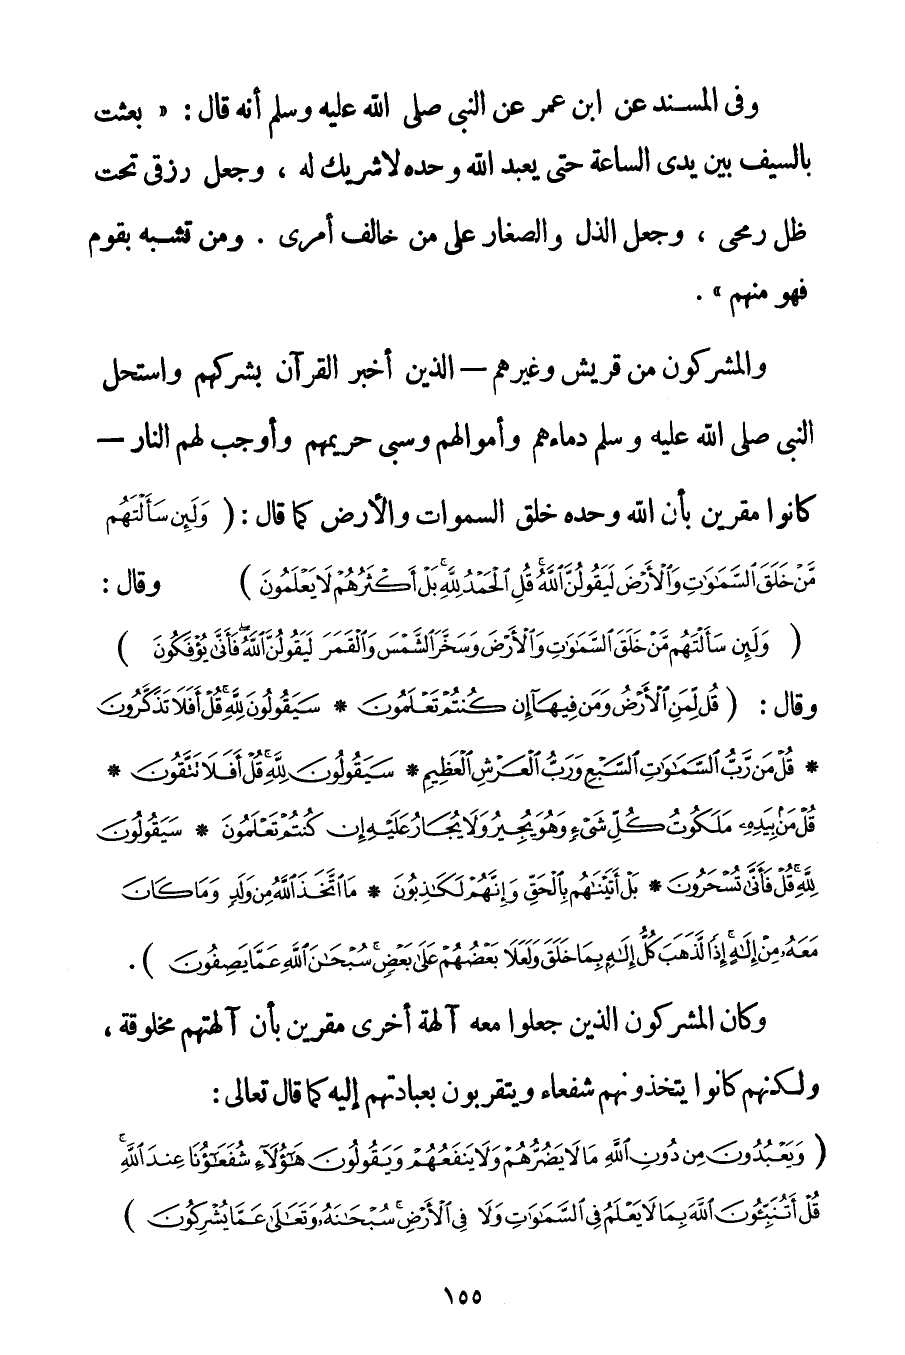 وفى المسند عن ابن عمر عن النبى صلى الله عليه وسلم أنه قال : « بعثت
بالسيف بين يدى الساعة حتى يعبد الله وحده لا شريك له ، وجعل رزقى تحت
ظل رمحى ، وجعل الذل والصغار على من خالف أمرى . ومن تشبه بقوم
فهو منهم » .
والمشركون من قريش وغيرهم — الذين أخبر القرآن بشركهم واستحل
النبى صلى الله عليه وسلم دماءهم وأموالهم وسبى حريمهم وأوجب لهم النار —
كانوا مقرين بأن الله وحده خلق السموات والأرض كما قال : ( وَلَئِن سَأَلْتَهُم
مَّنْ خَلَقَ ٱلسَّمَٰوَٰتِ وَٱلْأَرْضَ لَيَقُولُنَّ ٱللَّهُ ۚ قُلِ ٱلْحَمْدُ لِلَّهِ ۚ بَلْ أَكْثَرُهُمْ لَا يَعْلَمُونَ ) وقال :
( وَلَئِن سَأَلْتَهُم مَّنْ خَلَقَ ٱلسَّمَٰوَٰتِ وَٱلْأَرْضَ وَسَخَّرَ ٱلشَّمْسَ وَٱلْقَمَرَ لَيَقُولُنَّ ٱللَّهُ ۖ فَأَنَّىٰ يُؤْفَكُونَ )
وقال : ( قُل لِّمَنِ ٱلْأَرْضُ وَمَن فِيهَآ إِن كُنتُمْ تَعْلَمُونَ * سَيَقُولُونَ لِلَّهِ ۚ قُلْ أَفَلَا تَذَكَّرُونَ
* قُلْ مَن رَّبُّ ٱلسَّمَٰوَٰتِ ٱلسَّبْعِ وَرَبُّ ٱلْعَرْشِ ٱلْعَظِيمِ * سَيَقُولُونَ لِلَّهِ ۚ قُلْ أَفَلَا تَتَّقُونَ *
قُلْ مَنۢ بِيَدِهِۦ مَلَكُوتُ كُلِّ شَىْءٍ وَهُوَ يُجِيرُ وَلَا يُجَارُ عَلَيْهِ إِن كُنتُمْ تَعْلَمُونَ * سَيَقُولُونَ
لِلَّهِ ۚ قُلْ فَأَنَّىٰ تُسْحَرُونَ * بَلْ أَتَيْنَٰهُم بِٱلْحَقِّ وَإِنَّهُمْ لَكَٰذِبُونَ * مَا ٱتَّخَذَ ٱللَّهُ مِن وَلَدٍ وَمَا كَانَ
مَعَهُۥ مِنْ إِلَٰهٍ ۚ إِذًا لَّذَهَبَ كُلُّ إِلَٰهٍۭ بِمَا خَلَقَ وَلَعَلَا بَعْضُهُمْ عَلَىٰ بَعْضٍ ۚ سُبْحَٰنَ ٱللَّهِ عَمَّا يَصِفُونَ ) .
وكان المشركون الذين جعلوا معه آلهة أخرى مقرين بأن آلهتهم مخلوقة ،
ولكنهم كانوا يتخذونهم شفعاء ويتقربون بعبادتهم إليه كما قال تعالى :
( وَيَعْبُدُونَ مِن دُونِ ٱللَّهِ مَا لَا يَضُرُّهُمْ وَلَا يَنفَعُهُمْ وَيَقُولُونَ هَٰٓؤُلَآءِ شُفَعَٰٓؤُنَا عِندَ ٱللَّهِ ۚ
قُلْ أَتُنَبِّـُٔونَ ٱللَّهَ بِمَا لَا يَعْلَمُ فِى ٱلسَّمَٰوَٰتِ وَلَا فِى ٱلْأَرْضِ ۚ سُبْحَٰنَهُۥ وَتَعَٰلَىٰ عَمَّا يُشْرِكُونَ )
١٥٥